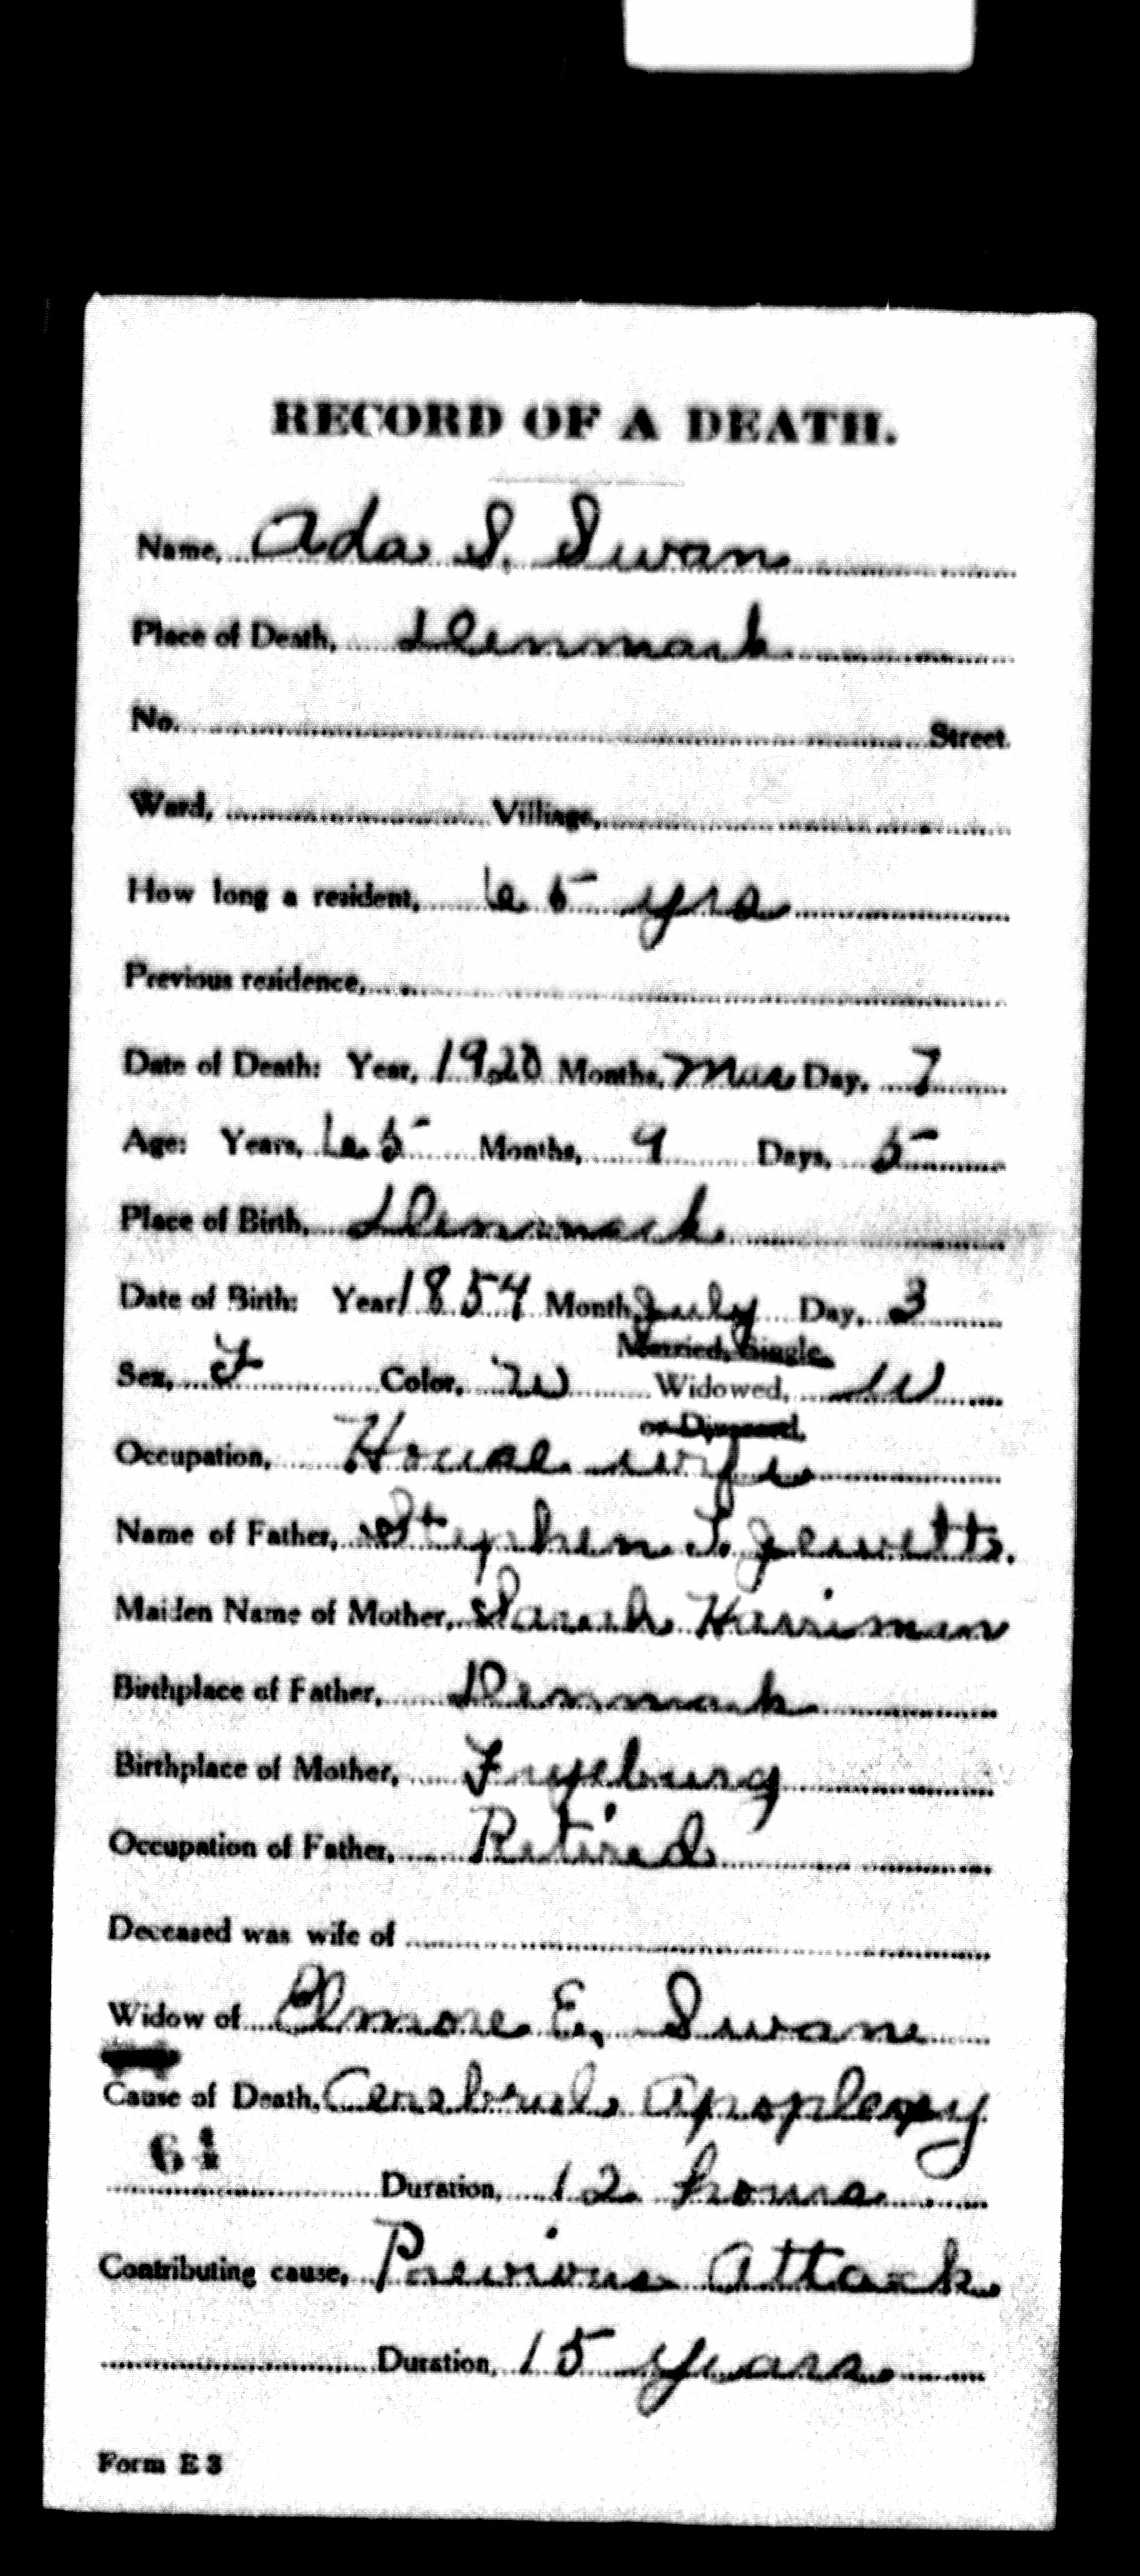 RECORD OF A DEATH.
Name, Ada S. Swan
Place of Death, Denmark
No. Street.
Ward, Village,
How long a resident, 65 yrs
Previous residence,
Date of Death: Year, 1920 Months, Mar Day, 7
Age: Years, 65 Months, 9 Days, 5
Place of Birth, Denmark
Date of Birth: Year 1854 Month, July Day, 3
Married, Single,
Sex, F Color, W Widowed, W
or Divorced,
Occupation, House wife
Name of Father, Stephen T. Jewett
Maiden Name of Mother, Sarah Harriman
Birthplace of Father, Denmark
Birthplace of Mother, Fryeburg
Occupation of Father, Retired
Deceased was wife of
Widow of Elmore E. Swan
Cause of Death, Cerebral Apoplexy
Duration, 12 hours
Contributing cause, Previous Attack
Duration, 15 years
Form E 3